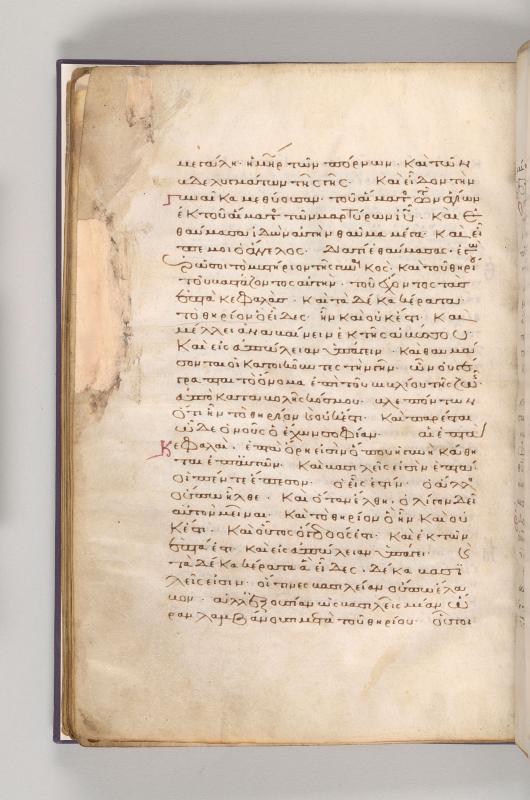 μεγάλη· ἡ μηρ τῶν πόρνων· καὶ τῶν
βδελυγμάτων τῆς γῆς· Καὶ εἶδον τὴν
γυναῖκα μεθύουσαν· τοῦ αἵματ τῶν ἁγίων
ἐκ τοῦ αἵματ τῶν μαρτύρων ιυ· Καὶ ἐ
θαύμασα ἰδὼν αὐτὴν θαῦμα μέγα· Καὶ εἶ
πέ μοι ὁ ἄγγελος· Διατί ἐθαύμασας· ἐγὼ
ἐρῶ σοι τὸ μυστήριον τῆς γυναικός· καὶ τοῦ θηρί
του βαστάζοντος αὐτὴν· τοῦ ἔχοντος τὰς
ἑπτὰ κεφαλὰς· Καὶ τὰ δέκα κέρατα·
τὸ θηρίον ὃ εἶδες· ἦν καὶ οὐκ ἔστι· Καὶ
μέλλει ἀναβαίνειν ἐκ τῆς ἀβύσσου·
Καὶ εἰς ἀπώλειαν ὑπάγειν· Καὶ θαυμά
σονται οἱ κατοικοῦντες τὴν γῆν· ὧν οὐ γέ
γραπται τὸ ὄνομα ἐπὶ τὸ βιβλίον τῆς ζωῆς
ἀπὸ καταβολῆς κόσμου· βλεπόντων
ὅτι ἦν τὸ θηρίον κ οὐκ ἔστι· Καὶ πάρεσται
ὧδε ὁ νοῦς ὁ ἔχων σοφίαν· αἱ ἑπτὰ
κεφαλαὶ· ἑπτὰ ὄρη εἰσὶν ὅπου ἡ γυνὴ κάθη
ται ἐπ' αὐτῶν· Καὶ βασιλεῖς εἰσὶν ἑπτά·
οἱ πέντε ἔπεσον· ὁ εἷς ἐστίν· ὁ ἄλλος
οὔπω ἦλθε· Καὶ ὅταν ἔλθη· ὀλίγον δεῖ
αὐτὸν μεῖναι· Καὶ τὸ θηρίον ὃ ἦν καὶ οὐ
κ ἔστι· Καὶ οὗτος ὄγδοός ἐστι· Καὶ ἐκ τῶν
ἑπτά ἐστι· Καὶ εἰς ἀπώλειαν ὑπάγει· κ
τὰ δέκα κέρατα ἃ εἶδες· δέκα βασϊ
λεῖς εἰσιν· οἵτινες βασιλείαν οὔπω ἔλα
βον· ἀλλ' ἐξουσίαν ὡς βασιλεῖς μίαν ὥ
ραν λαμβάνουσι μετὰ τοῦ θηρίου· οὗτοι